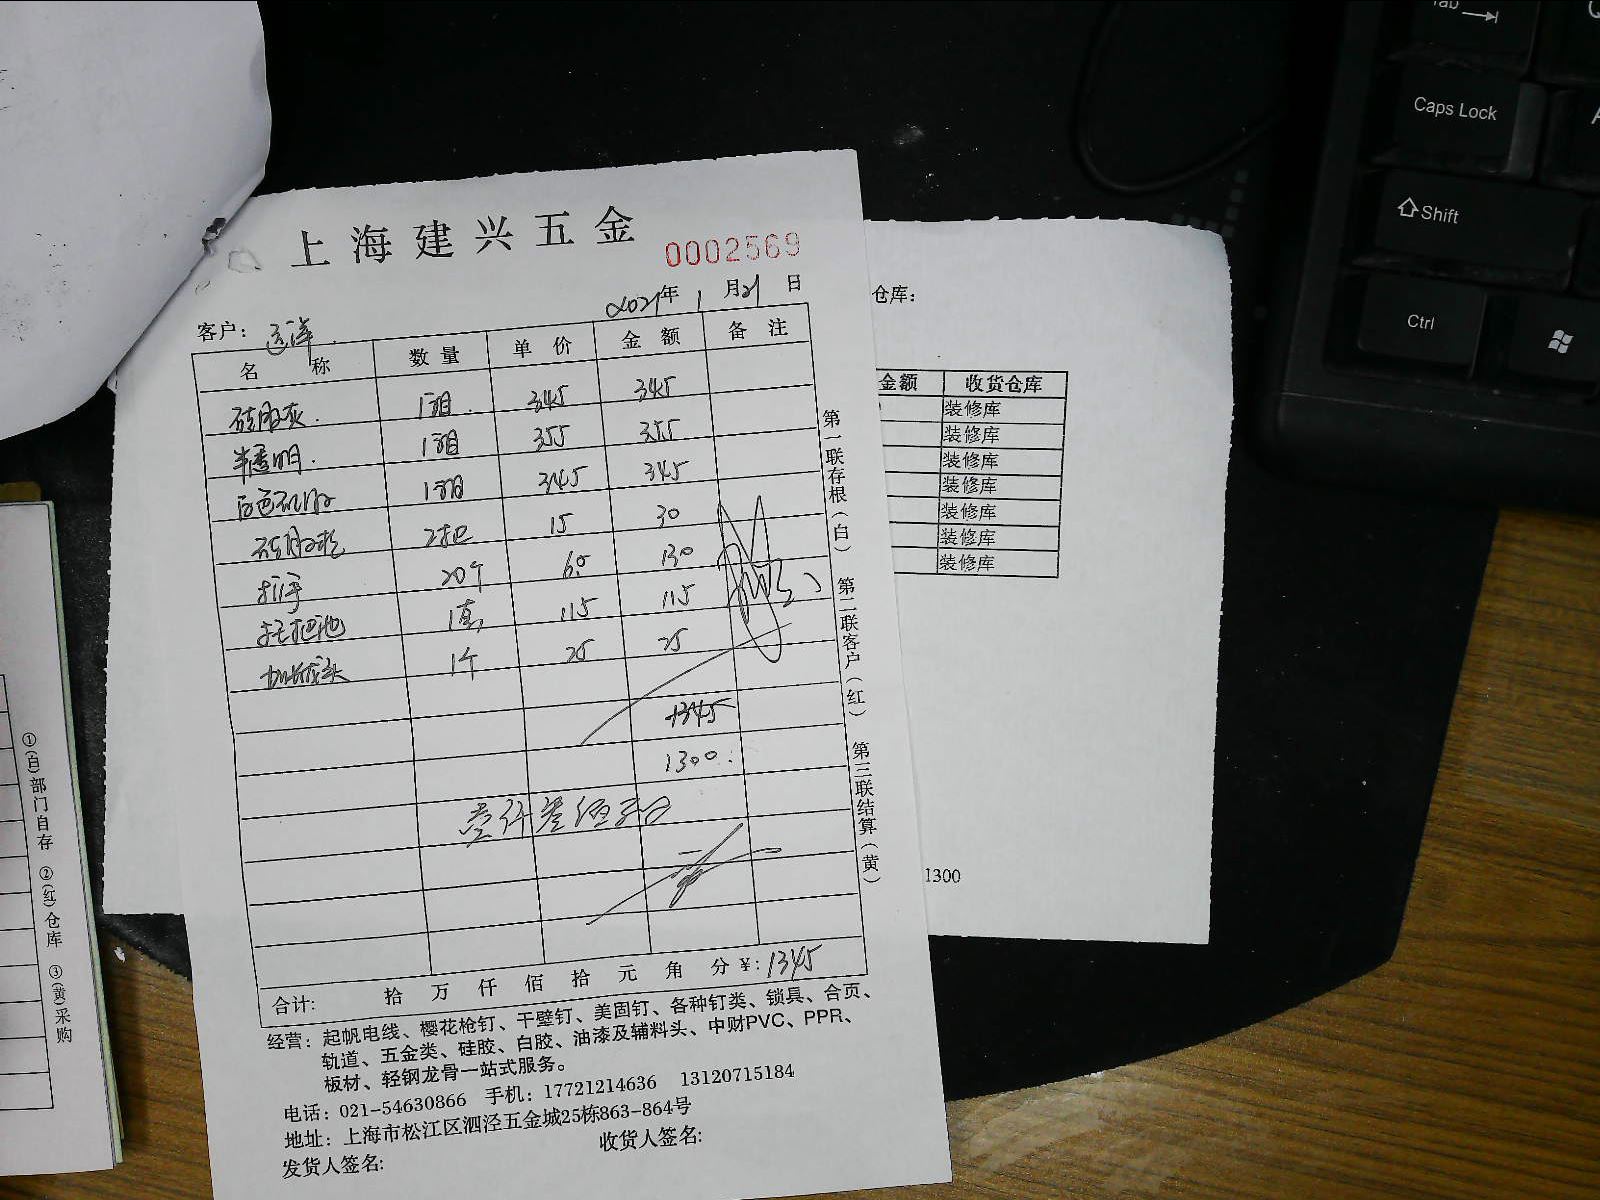 上海建兴五金
0002569
2021年 1 月21 日
客户:
名 称 数量 单价 金额 备注
硅胶灰 1箱 345 345
半透明 1箱 355 355
白色 1箱 345 345
硅胶枪 2把 15 30
20个 6.5 130
拖把池 1套 115 115
1个 25 25
1345
1300
壹仟叁佰
合计: 拾 万 仟 佰 拾 元 角 分 ¥: 1345
经营: 起帆电线、樱花枪钉、干壁钉、美固钉、各种钉类、锁具、合页、
轨道、五金类、硅胶、白胶、油漆及辅料头、中财PVC、PPR、
板材、轻钢龙骨一站式服务。
电话: 021-54630866 手机: 17721214636 13120715184
地址: 上海市松江区泗泾五金城25栋863-864号
发货人签名: 收货人签名:
第一联存根(白) 第二联客户(红) 第三联结算(黄)
仓库:
金额 收货仓库
装修库
装修库
装修库
装修库
装修库
装修库
装修库
1300
①(白)部门自存 ②(红)仓库 ③(黄)采购
Tab
Caps Lock
Shift
Ctrl